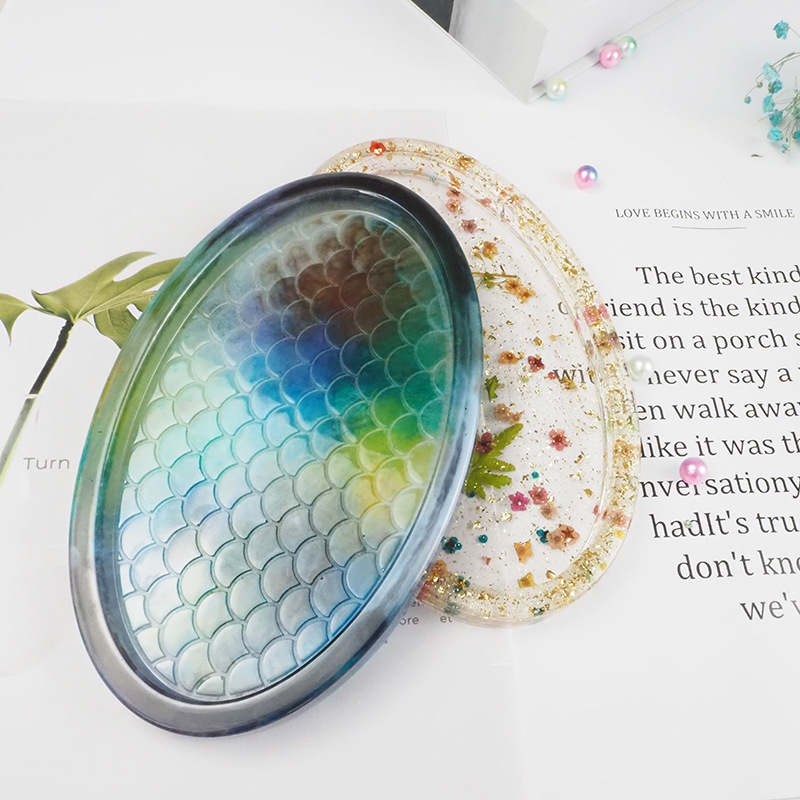 LOVE BEGINS WITH A SMILE
The best kind
friend is the kind
sit on a porch
never say a
walk away
like it was
sationy
hadIt's tru
don't kno
we'v
Turn
ore et